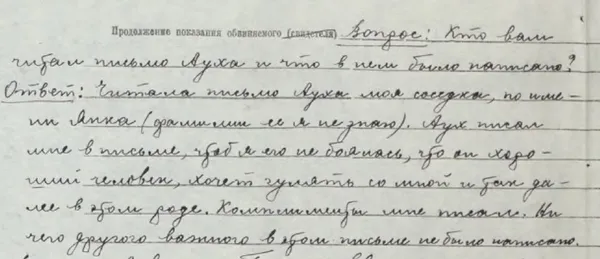 Продолжение показания обвиняемого (свидетеля) Вопрос: Кто вам
читал письмо Ауха и что в нем было написано?
Ответ: Читала письмо Ауха моя соседка, по име-
ни Янка (фамилии ее я не знаю). Аух писал
мне в письме, чтоб я его не боялась, что он хоро-
ший человек, хочет гулять со мной и так да-
лее в этом роде. Комплименты мне писал. Ни
чего другого важного в этом письме не было написано.